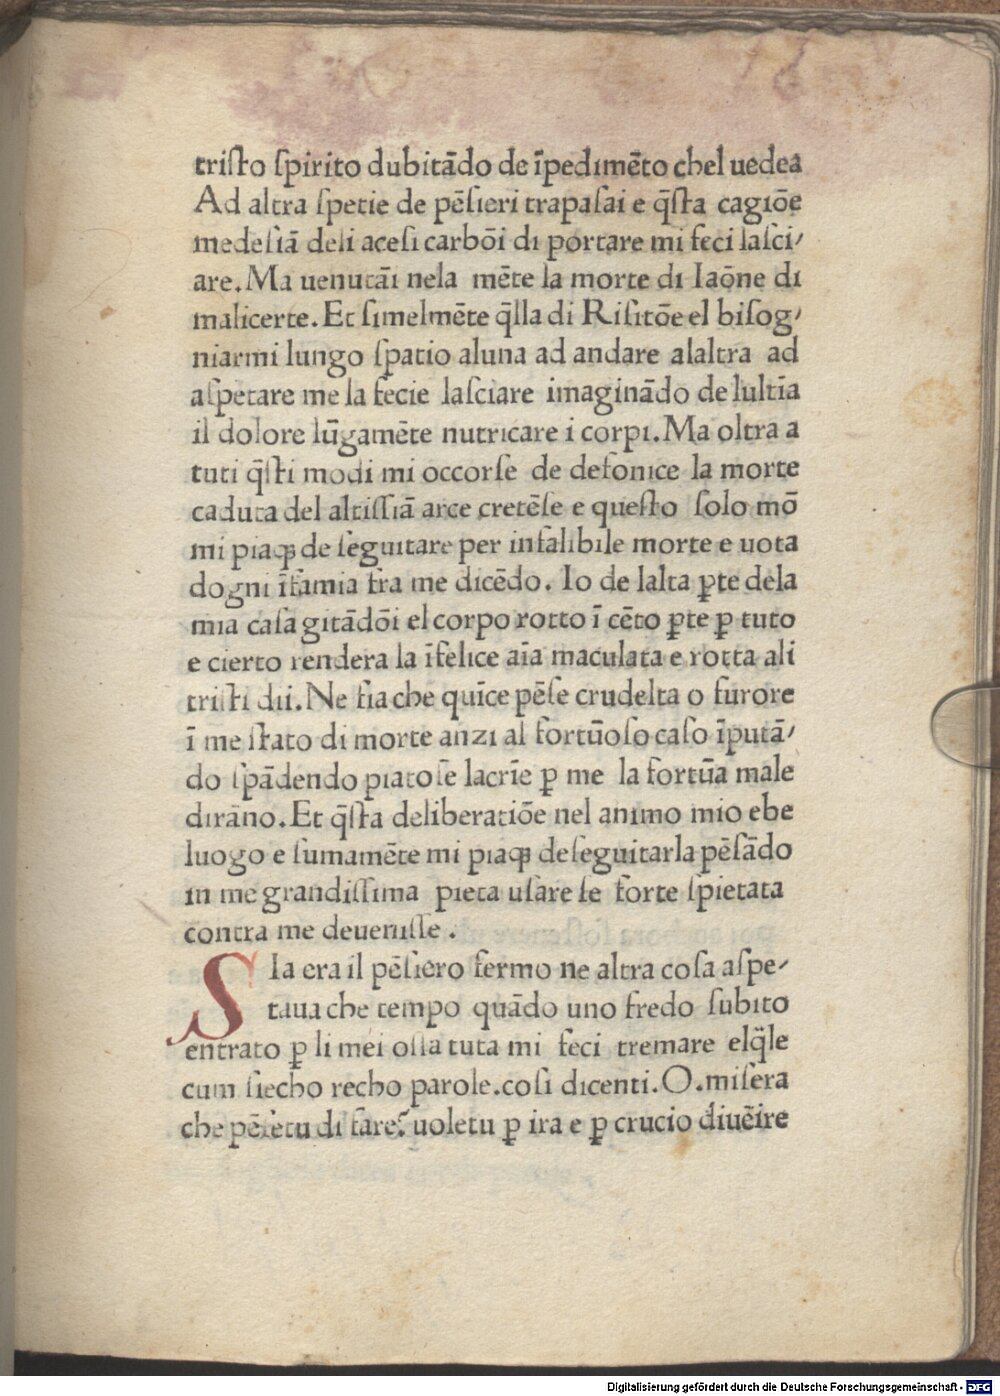 triſto ſpirito dubitādo de īpedimēto chel uedea
Ad altra ſpetie de pēſieri trapaſai e q̄ſta cagiōe
medeſiā deli aceſi carbōi di portare mi feci laſci/
are. Ma uenutāi nela mēte la morte di Iaōne di
malicerte. Et ſimelmēte q̄lla di Riſitōe el biſog/
niarmi lungo ſpatio aluna ad andare alaltra ad
aſpetare me la fecie laſciare imaginādo de lultīa
il dolore lūgamēte nutricare i corpi. Ma oltra a
tuti q̄ſti modi mi occorſe de deſonice la morte
caduta del altiſſiā arce cretēſe e queſto ſolo mō
mi piaꝗ de ſeguitare per infalibile morte e uota
dogni īfamia fra me dicēdo. Io de lalta ꝑte dela
mia caſa gitādōi el corpo rotto ī cēto ꝑte ꝑ tuto
e cierto rendera la īfelice aīa maculata e rotta ali
triſti dii. Ne ſia che quīce pēſe crudelta o furore
ī me ſtato di morte anzi al fortūoſo caſo īputā/
do ſpādendo piatoſe lacrīe ꝑ me la fortūa male
dirāno. Et q̄ſta deliberatiōe nel animo mio ebe
luogo e ſumamēte mi piaꝗ deſeguitarla pēſādo
in me grandiſſima pieta uſare ſe forte ſpietata
contra me deueniſſe.
S Ia era il pēſiero fermo ne altra coſa aſpe/
taua che tempo quādo uno fredo ſubito
entrato ꝑ li mei oſſa tuta mi feci tremare elq̄le
cum ſiecho recho parole. coſi dicenti. O. miſera
che pēſetu di fare? uoletu ꝑ ira e ꝑ crucio diuēire
Digitalisierung gefördert durch die Deutsche Forschungsgemeinschaft - DFG